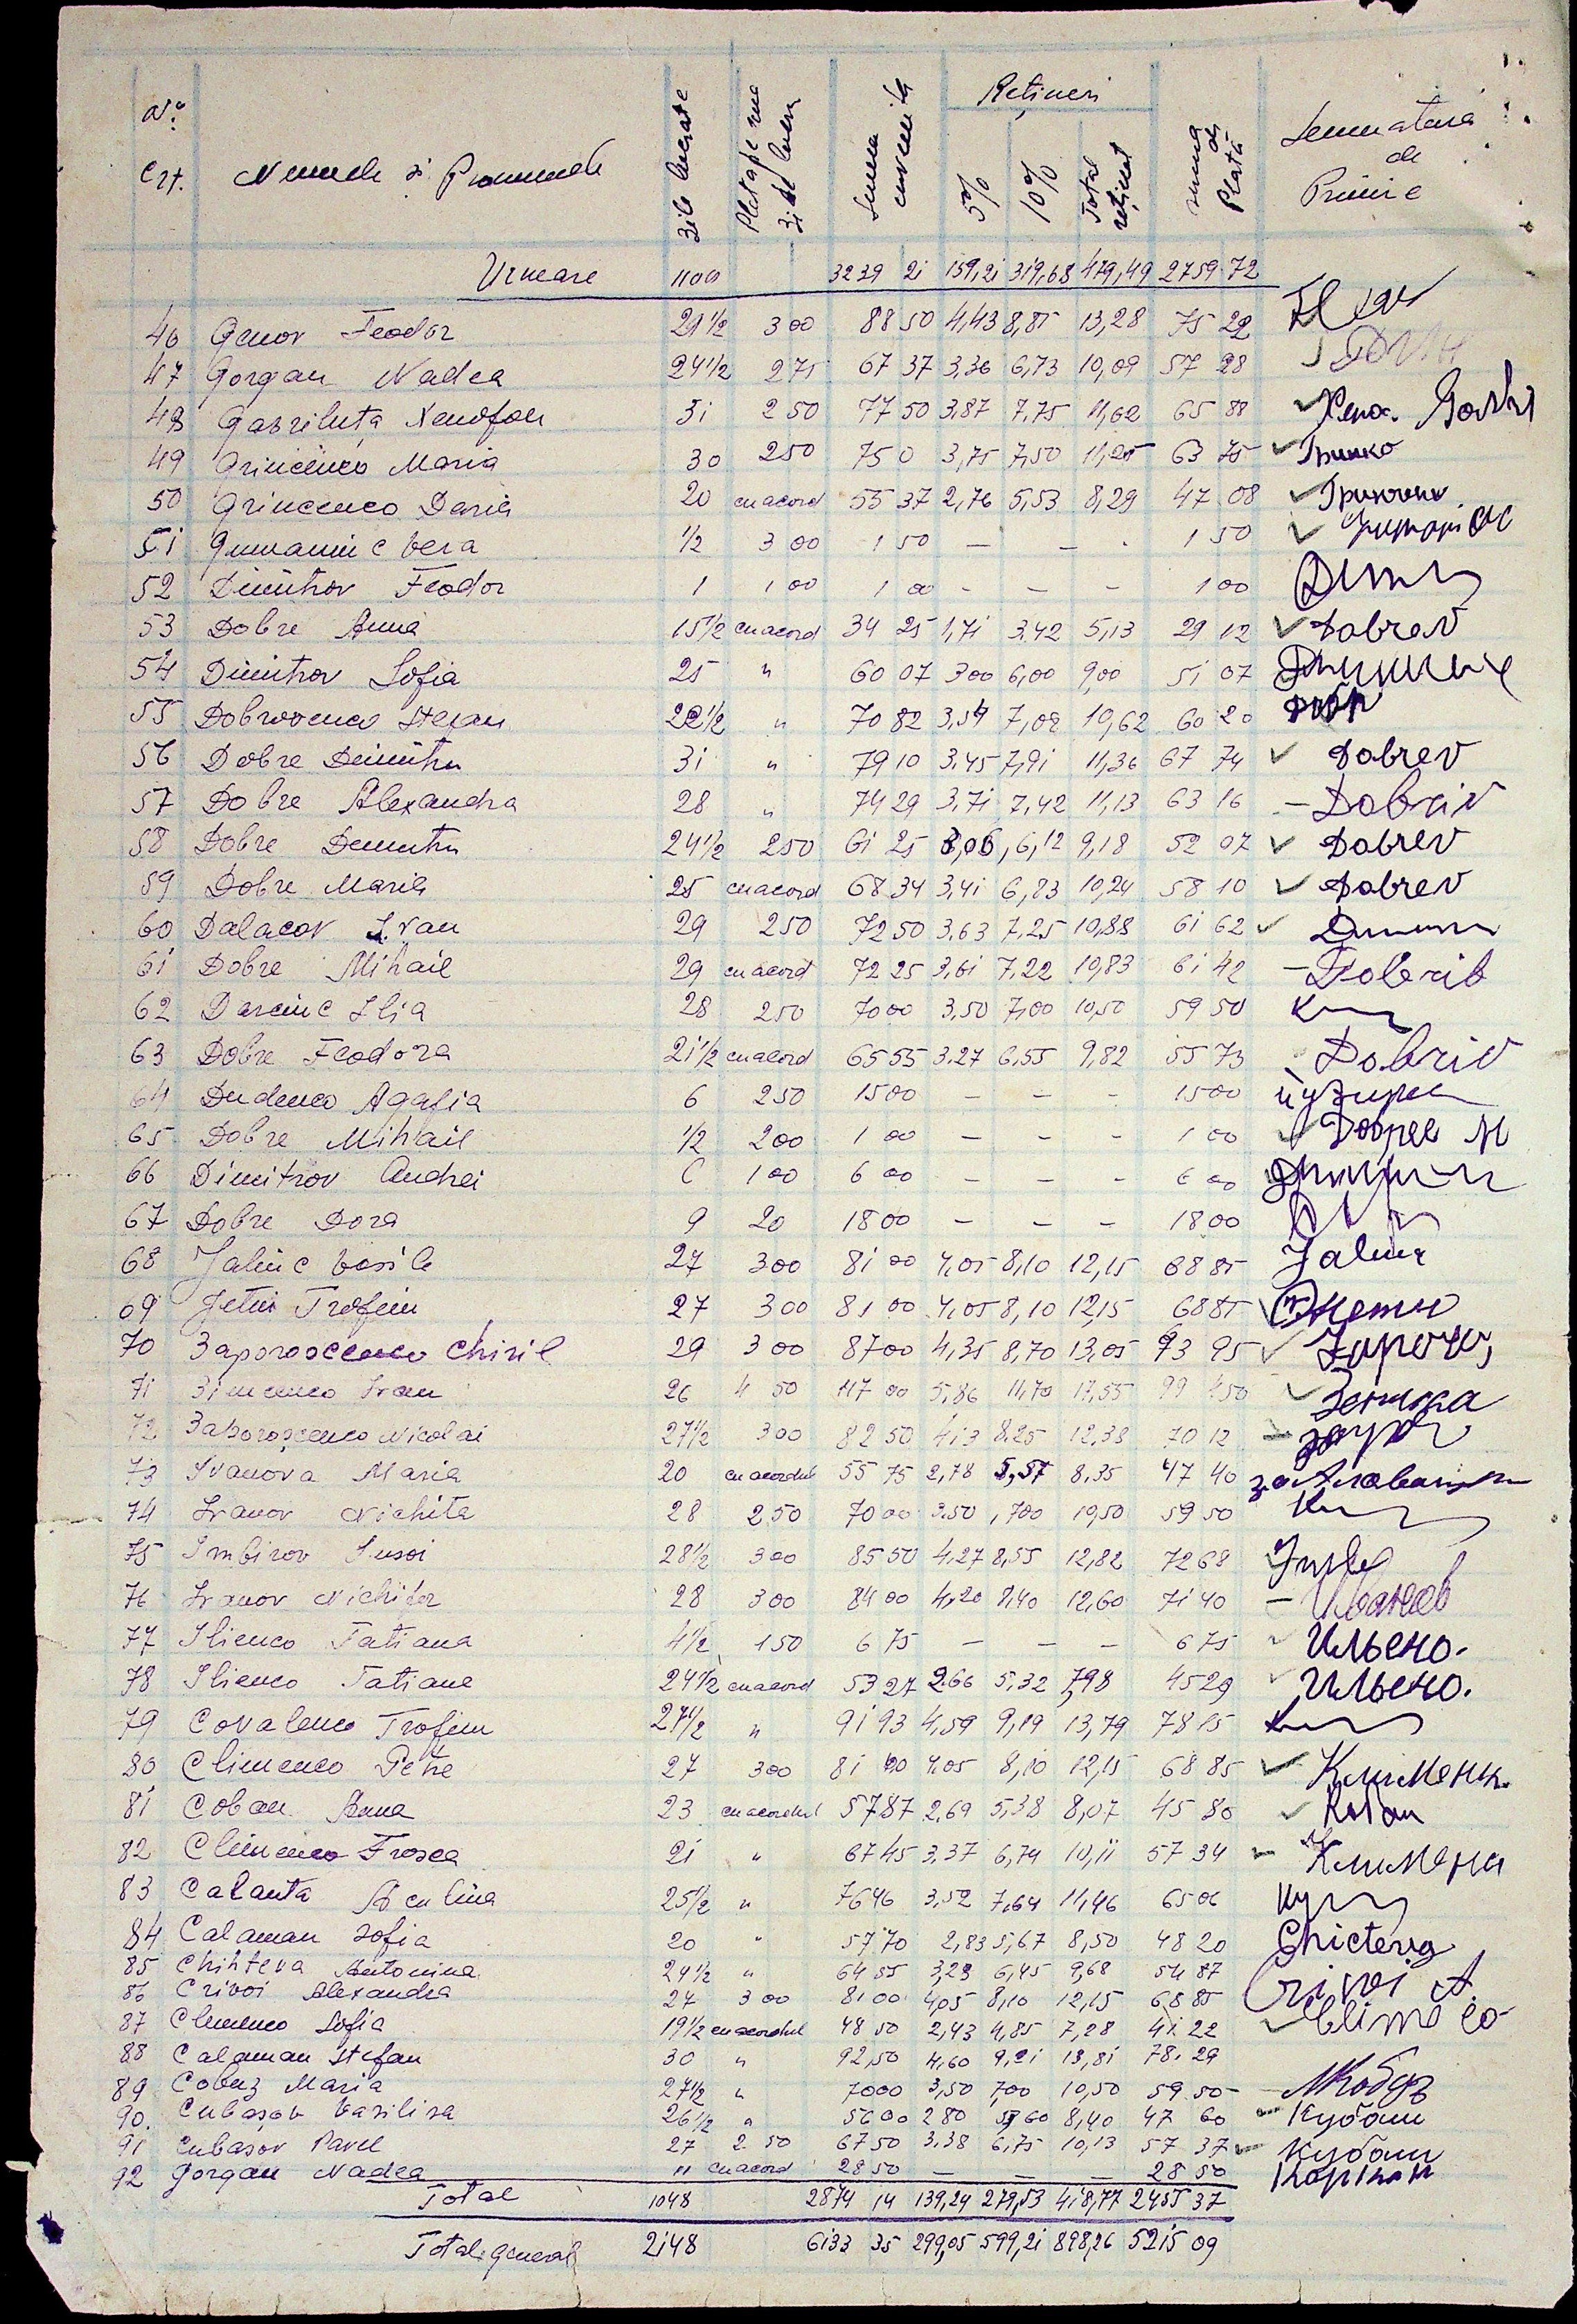 No. Crt. Numele și Pronumele Zile lucrate Plata pe una zi de lucru Suma cuvenită Rețineri 5% 10% Total reținut Suma de Plată Semnatura de Primire
Urmare 1100 3239 21 159,21 319,68 479,49 2759 72
46 Genov Feodor 29 1/2 3 00 88 50 4,43 8,85 13,28 75 22
47 Gorgan Nadea 24 1/2 2 75 67 37 3,36 6,73 10,09 57 28
48 Gavriluța Xenofon 31 2 50 77 50 3,87 7,75 11,62 65 88
49 Grincenco Maria 30 2 50 75 0 3,75 7,50 11,25 63 75 Гринко
50 Grincenco Daria 20 cu acord 55 37 2,76 5,53 8,29 47 08
51 Gumaniuc Vera 1/2 3 00 1 50 — — - 1 50
52 Dimitrov Feodor 1 1 00 1 00 - — - 1 00
53 Dobre Anna 15 1/2 cu acord 34 25 1,71 3.42 5,13 29 12 Dobrev
54 Dimitrov Sofia 25 " 60 07 3 00 6,00 9,00 51 07
55 Dobrovenco Stefan 22 1/2 " 70 82 3,54 7,08 10,62 60 20
56 Dobre Dimitru 31 " 79 10 3.45 7,91 11,36 67 74 Dobrev
57 Dobre Alexandra 28 " 74 29 3.71 7,42 11,13 63 16 Dobriv
58 Dobre Dumitru 24 1/2 2 50 61 25 3,06 6,12 9,18 52 07 Dobrev
59 Dobre Maria 25 cu acord 68 34 3,41 6,83 10,24 58 10 Dobrev
60 Dalacov Ivan 29 2 50 72 50 3.63 7,25 10,88 61 62
61 Dobre Mihail 29 cu acord 72 25 3,61 7,22 10,83 61 42
62 Darciuc Ilia 28 2 50 70 00 3,50 7,00 10,50 59 50
63 Dobre Feodora 21 1/2 cu acord 65 55 3.27 6,55 9,82 55 73 Dobriv
64 Dudenco Agafia 6 2 50 15 00 — — - 15 00
65 Dobre Mihail 1/2 2 00 1 00 — - - 1 00
66 Dimitrov Andrei 6 1 00 6 00 — - - 6 00
67 Dobre Dora 9 20 18 00 — — — 18 00
68 Jaliuc Vasile 27 3 00 81 00 4,05 8,10 12,15 68 85
69 Jetiu Trofim 27 3 00 81 00 4,05 8,10 12,15 68 85
70 Zaporoscenco Chiril 29 3 00 87 00 4,35 8,70 13,05 73 95
71 Zimenco Ivan 26 4 50 117 00 5,86 11,70 17,55 99 450
72 Zaporoșcenco Nicolai 27 1/2 3 00 82 50 413 8.25 12,38 70 12
73 Ivanova Maria 20 cu acordul 55 75 2,78 5,57 8,35 47 40
74 Ivanov Nichita 28 2 50 70 00 3,50 ,700 10,50 59 50
75 Imbirov Susoi 28 1/2 3 00 85 50 4,27 8,55 12,82 72 68
76 Ivanov Nichifor 28 3 00 84 00 4,20 8,40 12,60 71 40 Иванов
77 Ilienco Tatiana 4 1/2 1 50 6 75 — — — 6 75 Ильено.
78 Ilienco Tatiana 24 1/2 cu acord 53 27 2.66 5,32 7,98 45 29 Ильено.
79 Covalenco Trofim 27 1/2 " 91 93 4,59 9,19 13,79 78 15
80 Climenco Petre 27 3 00 81 00 4,05 8,10 12,15 68 85
81 Coban Anna 23 cu acordul 57 87 2,69 5,38 8,07 45 80
82 Climenco Frosea 21 " 67 45 3,37 6,74 10,11 57 34
83 Calanta Aculina 25 1/2 " 76 46 3,52 7,64 11,46 65 06
84 Calaman Sofia 20 " 57 70 2,83 5,67 8,50 48 20 Chicteva
85 Chihteva Antonina 24 1/2 " 64 55 3,23 6,45 9,68 54 87
86 Crivoi Alexandra 27 3 00 81 00 4,05 8,10 12,15 68 85 Crivoi A.
87 Climenco Sofia 19 1/2 cu acordul 48 50 2,43 4,85 7,28 41 22
88 Calaman Stefan 30 " 92,50 4,60 9,21 13,81 78. 29
89 Cobuz Maria 27 1/2 " 70 00 3,50 7,00 10,50 59 50
90. Cubașov Vasilisa 26 1/2 " 56 00 2 80 5,60 8,40 47 60 Кубаш
91 Cubașov Pavel 27 2 50 67 50 3.38 6,75 10,13 57 37 Кубаш
92 Gorgan Nadea 11 cu acord 28 50 — — — 28 50
Total 1048 2874 14 139,24 279,53 418,77 2455 37
Total general 2148 6133 35 299,05 599,21 898,26 5215 09